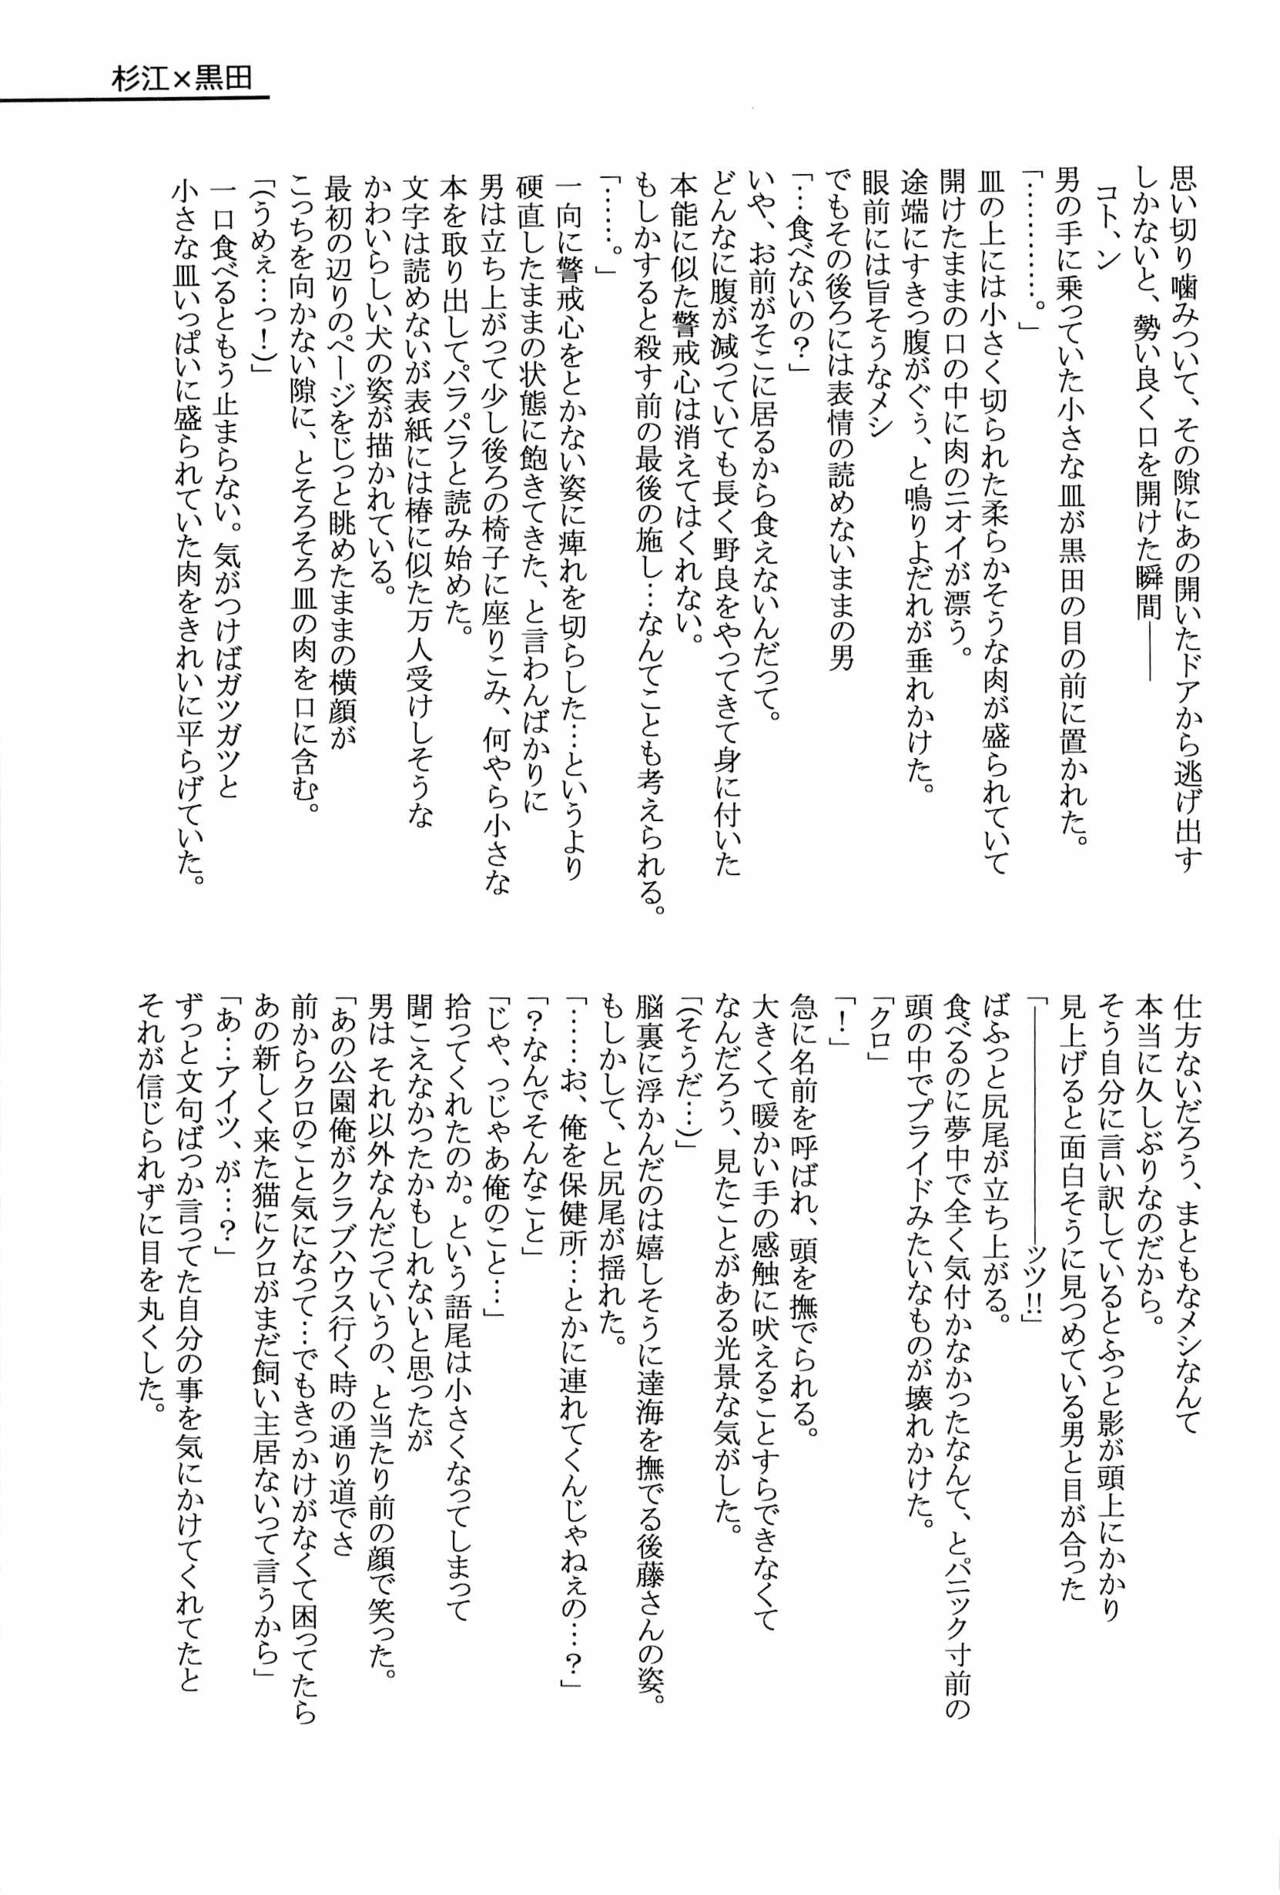 杉江×黒田
思い切り噛みついて、その隙にあの開いたドアから逃げ出す
しかないと、勢い良く口を開けた瞬間――
コト、ン
男の手に乗っていた小さな皿が黒田の目の前に置かれた。
「…………。」
皿の上には小さく切られた柔らかそうな肉が盛られていて
開けたままの口の中に肉のニオイが漂う。
途端にすきっ腹がぐぅ、と鳴りよだれが垂れかけた。
眼前には旨そうなメシ
でもその後ろには表情の読めないままの男
「…食べないの？」
いや、お前がそこに居るから食えないんだって。
どんなに腹が減っていても長く野良をやってきて身に付いた
本能に似た警戒心は消えてはくれない。
もしかすると殺す前の最後の施し…なんてことも考えられる。
「……。」
一向に警戒心をとかない姿に痺れを切らした…というより
硬直したままの状態に飽きてきた、と言わんばかりに
男は立ち上がって少し後ろの椅子に座りこみ、何やら小さな
本を取り出してパラパラと読み始めた。
文字は読めないが表紙には椿に似た万人受けしそうな
かわいらしい犬の姿が描かれている。
最初の辺りのページをじっと眺めたままの横顔が
こっちを向かない隙に、とそろそろ皿の肉を口に含む。
「（うめぇ…っ！）」
一口食べるともう止まらない。気がつけばガツガツと
小さな皿いっぱいに盛られていた肉をきれいに平らげていた。
仕方ないだろう、まともなメシなんて
本当に久しぶりなのだから。
そう自分に言い訳しているとふっと影が頭上にかかり
見上げると面白そうに見つめている男と目が合った
「――――――ッツ!!」
ばふっと尻尾が立ち上がる。
食べるのに夢中で全く気付かなかったなんて、とパニック寸前の
頭の中でプライドみたいなものが壊れかけた。
「クロ」
「！」
急に名前を呼ばれ、頭を撫でられる。
大きくて暖かい手の感触に吠えることすらできなくて
なんだろう、見たことがある光景な気がした。
「（そうだ…）」
脳裏に浮かんだのは嬉しそうに達海を撫でる後藤さんの姿。
もしかして、と尻尾が揺れた。
「……お、俺を保健所…とかに連れてくんじゃねぇの…？」
「？なんでそんなこと」
「じゃ、っじゃあ俺のこと…」
拾ってくれたのか。という語尾は小さくなってしまって
聞こえなかったかもしれないと思ったが
男は それ以外なんだっていうの、と当たり前の顔で笑った。
「あの公園俺がクラブハウス行く時の通り道でさ
前からクロのこと気になって…でもきっかけがなくて困ってたら
あの新しく来た猫にクロがまだ飼い主居ないって言うから」
「あ…アイツ、が…？」
ずっと文句ばっか言ってた自分の事を気にかけてくれてたと
それが信じられずに目を丸くした。